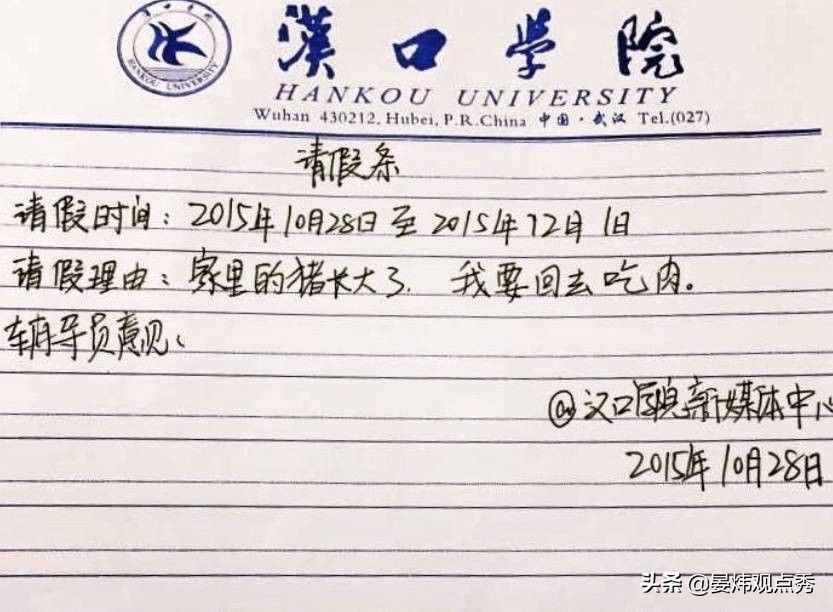 漢口学院
HANKOU UNIVERSITY
Wuhan 430212, Hubei, P.R.China 中国·武汉 Tel.(027)
请假条
请假时间：2015年10月28日至2015年12月1日
请假理由：家里的猪长大了.我要回去吃肉。
辅导员意见：
@汉口学院新媒体中心
2015年10月28日
头条@晏炜观点秀